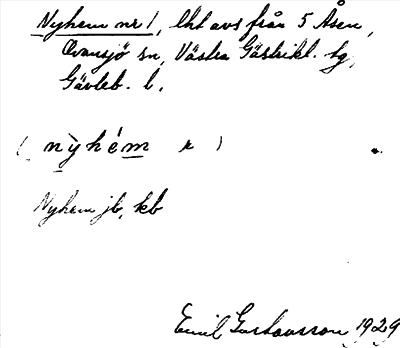 Nyhem nr 1, lht avs från 5 Åsen,
Ovansjö sn, Västra Gästrikl. tg,
Gävleb. l.
( nỳhém r )
Nyhem jb, kb
Emil Gustavsson 1929